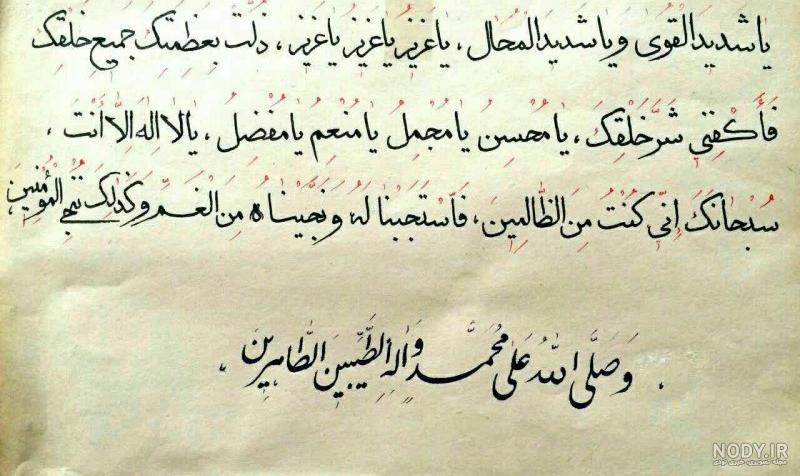 يا شديدَ القُوىٰ و يا شديدَ المحال، يا عَزيزُ يا عَزيزُ يا عَزيز، ذلّت بعَظمتك جميعُ خلقك
فَأكفِني شَرَّ خَلقِكَ، يا مُحْسِنُ يا مُجْمِلُ يا مُنْعِمُ يا مُفْضِلُ، يا لا اِلٰهَ اِلّا أنْتَ،
سُبْحانَكَ إنّي كُنْتُ مِنَ الظّالِمينَ، فَاسْتَجَبْنا لَهُ و نَجَّيْناهُ مِنَ الْغَمِّ وَ كَذٰلِكَ نُنْجِي الْمُؤْمِنينَ،
. وَ صَلَّى اللهُ عَلىٰ مُحَمَّدٍ وَ آلِهِ الطَّيِّبينَ الطّاهِرينَ .
NODY.IR